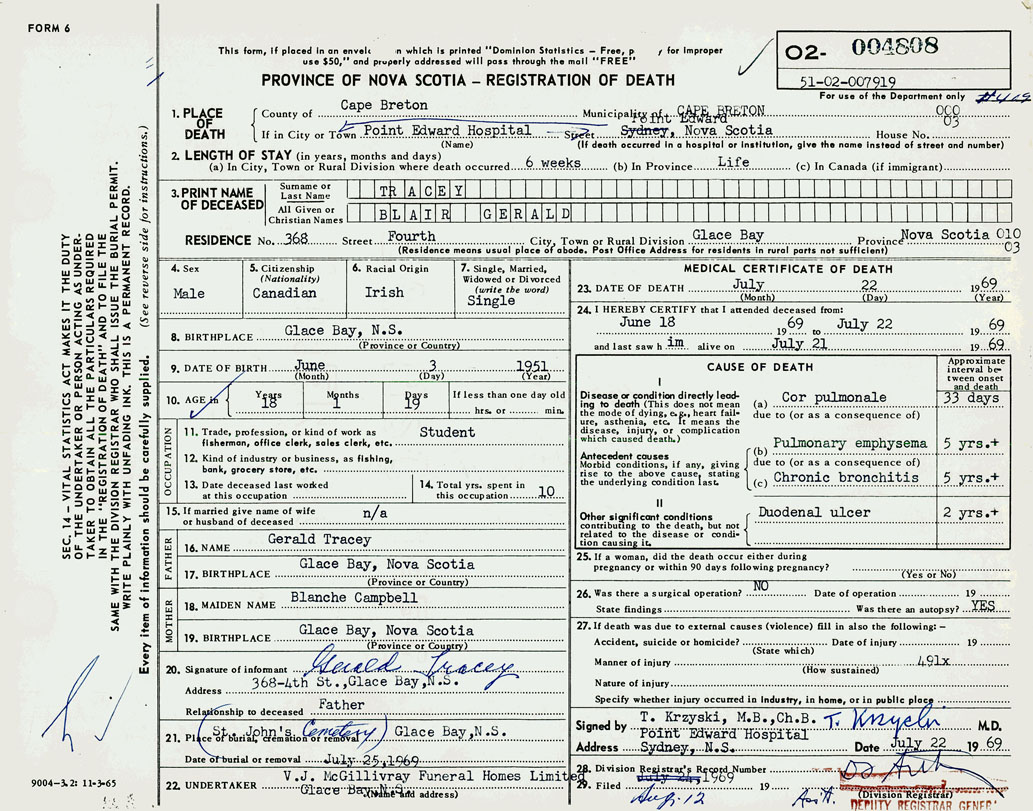 FORM 6
This form, if placed in an envelo n which is printed "Dominion Statistics – Free, p y for improper
use $50," and properly addressed will pass through the mail "FREE"
PROVINCE OF NOVA SCOTIA – REGISTRATION OF DEATH
02- 004808
51-02-007919
For use of the Department only #419
1. PLACE OF DEATH
County of Cape Breton Municipality of CAPE BRETON 000
Point Edward 03
If in City or Town Point Edward Hospital Street Sydney, Nova Scotia House No.
(Name) (If death occurred in a hospital or institution, give the name instead of street and number)
2. LENGTH OF STAY (in years, months and days)
(a) In City, Town or Rural Division where death occurred 6 weeks (b) In Province Life (c) In Canada (if immigrant)
3. PRINT NAME OF DECEASED
Surname or Last Name TRACEY
All Given or Christian Names BLAIR GERALD
RESIDENCE No. 368 Street Fourth City, Town or Rural Division Glace Bay Province Nova Scotia 010
(Residence means usual place of abode. Post Office Address for residents in rural parts not sufficient) 03
4. Sex
Male
5. Citizenship
(Nationality)
Canadian
6. Racial Origin
Irish
7. Single, Married,
Widowed or Divorced
(write the word)
Single
8. BIRTHPLACE Glace Bay, N.S.
(Province or Country)
9. DATE OF BIRTH June 3 1951
(Month) (Day) (Year)
10. AGE in Years Months Days If less than one day old
18 1 19 hrs. or min.
OCCUPATION
11. Trade, profession, or kind of work as Student
fisherman, office clerk, sales clerk, etc.
12. Kind of industry or business, as fishing,
bank, grocery store, etc.
13. Date deceased last worked
at this occupation
14. Total yrs. spent in
this occupation 10
15. If married give name of wife
or husband of deceased n/a
FATHER
16. NAME Gerald Tracey
17. BIRTHPLACE Glace Bay, Nova Scotia
(Province or Country)
MOTHER
18. MAIDEN NAME Blanche Campbell
19. BIRTHPLACE Glace Bay, Nova Scotia
(Province or Country)
20. Signature of informant Gerald Tracey
Address 368-4th St.,Glace Bay,N.S.
Relationship to deceased Father
St. John's Cemetery Glace Bay,N.S.
21. Place of burial, cremation or removal
Date of burial or removal July 25,1969
V.J. McGillivray Funeral Homes Limited
22. UNDERTAKER Glace Bay,N.S.
(Name and address)
MEDICAL CERTIFICATE OF DEATH
23. DATE OF DEATH July 22 1969
(Month) (Day) (Year)
24. I HEREBY CERTIFY that I attended deceased from:
June 18 1969 to July 22 1969
and last saw him alive on July 21 1969.
CAUSE OF DEATH
Approximate
interval be-
tween onset
and death
I
Disease or condition directly lead-
ing to death (This does not mean
the mode of dying, e.g., heart fail-
ure, asthenia, etc. It means the
disease, injury, or complication
which caused death.)
(a) Cor pulmonale 33 days
due to (or as a consequence of)
Antecedent causes
Morbid conditions, if any, giving
rise to the above cause, stating
the underlying condition last.
(b) Pulmonary emphysema 5 yrs.+
due to (or as a consequence of)
(c) Chronic bronchitis 5 yrs.+
II
Other significant conditions
contributing to the death, but not
related to the disease or condi-
tion causing it.
Duodenal ulcer 2 yrs.+
25. If a woman, did the death occur either during
pregnancy or within 90 days following pregnancy?
(Yes or No)
26. Was there a surgical operation? NO Date of operation 19
State findings Was there an autopsy? YES
27. If death was due to external causes (violence) fill in also the following: –
Accident, suicide or homicide? Date of injury 19
(State which)
Manner of injury 491x
(How sustained)
Nature of injury
Specify whether injury occurred in Industry, in home, or in public place
Signed by T. Krzyski, M.B.,Ch.B. T. Krzyski M.D.
Point Edward Hospital
Address Sydney, N.S. Date July 22 1969
28. Division Registrar's Record Number
29. Filed July 24, 1969 19
Aug. 12 Asst. (Division Registrar)
DEPUTY REGISTRAR GENER
SEC. 14 – VITAL STATISTICS ACT MAKES IT THE DUTY
OF THE UNDERTAKER OR PERSON ACTING AS UNDER-
TAKER TO OBTAIN ALL THE PARTICULARS REQUIRED
IN THE "REGISTRATION OF DEATH" AND TO FILE THE
SAME WITH THE DIVISION REGISTRAR WHO SHALL ISSUE THE BURIAL PERMIT.
WRITE PLAINLY WITH UNFADING INK. THIS IS A PERMANENT RECORD.
Every item of information should be carefully supplied. (See reverse side for instructions.)
9004–3.2: 11-3-65